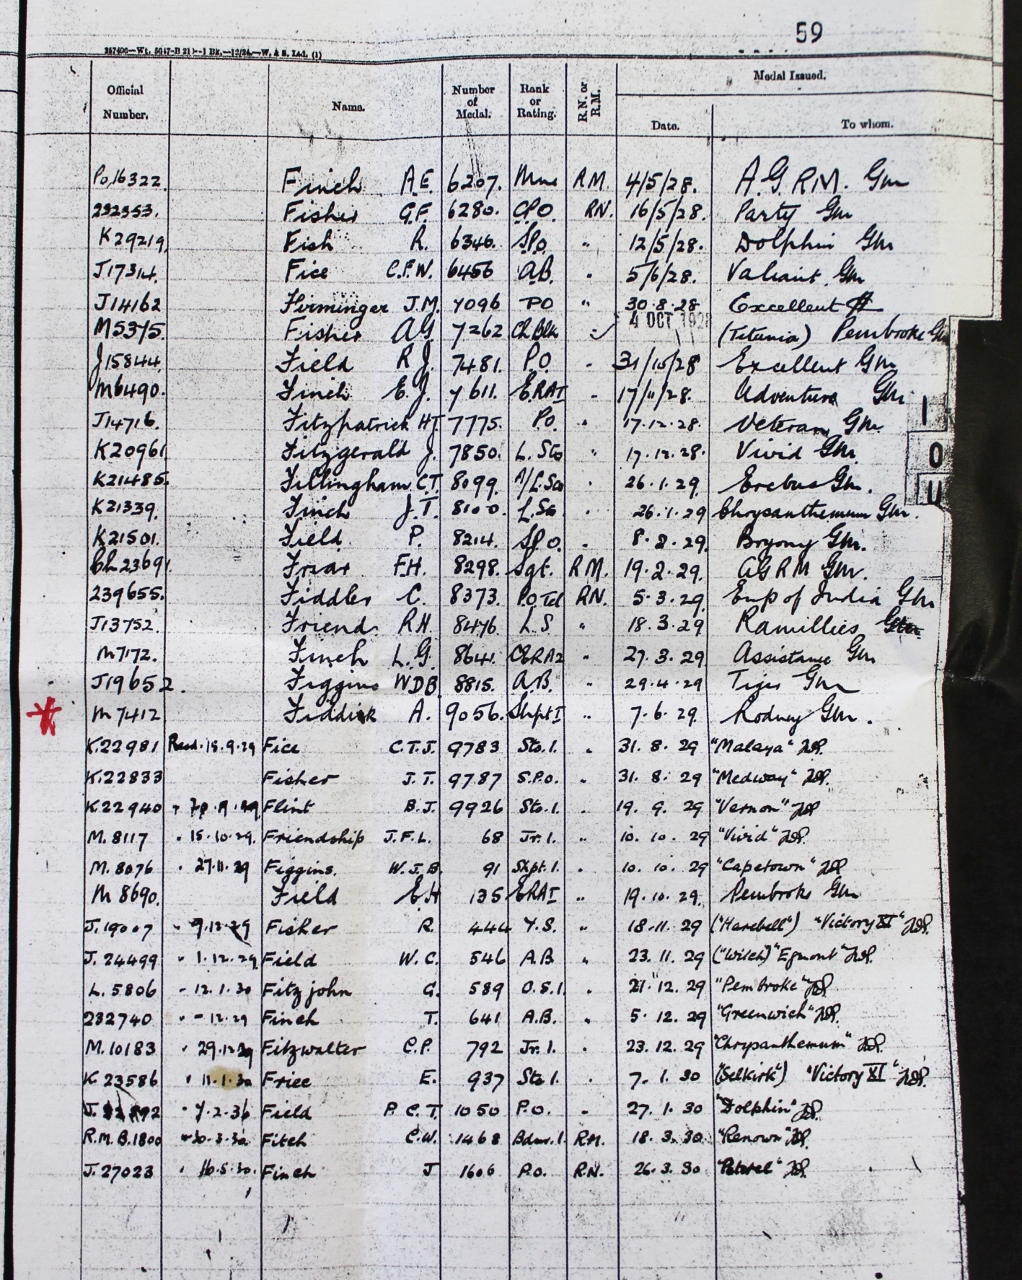 59
Medal Issued.
Official Number. Name. Number of Medal. Rank or Rating. R.N. or R.M. Date. To whom.
Po.16322. Finch A.E. 6207. Mne R.M. 4/5/28. A.G.R.M. Gm
232353. Fisher G.F. 6280. C.P.O RN. 16/5/28. Party Gm
K29219. Fish R. 6346. S.P.O " 12/5/28. Dolphin Gm
J17314. Fice C.F.W. 6456 A.B. " 5/6/28. Valiant Gm
J14162 Firminger J.M. 7096 PO " 30.8.28 Excellent
M5375. Fisher A.G. 7262 " 4 OCT 1928 (Titania) Pembroke Gm
J15844. Field R.J. 7481. P.O. 31/10/28 Excellent Gm
M6490. Finch E.J. 7611. ERAI " 17/11/28. Adventure Gm
J14716. Fitzpatrick HJ 7775. Po. " 17.12.28. Veteran Gm
K20961 Fitzgerald J. 7850. L. Sto " 17.12.28. Vivid Gm
K21485. Fillingham C.T. 8099. A/L.Sto 26.1.29. Erebus Gm.
K21339. Finch J.T. 8100. L.Sto . 26.1.29 Chrysanthemum Gm.
K21501. Field P. 8214. S.P.O. . 8.2.29. Bryony Gm.
Ch23691. Friar F.H. 8298. Sgt. R.M. 19.2.29. AGRM Gm.
239655. Fiddler C. 8373. P.O.Tel RN. 5.3.29. Emp of India Gm
J13752. Friend R.H. 8476. L.S " 18.3.29 Ramillies Gm
M7172. Finch L.G. 8641. CERA2 " 27.3.29 Assistance Gm
J19652. Figgins WDB 8815. A.B. " 29.4.29 Tiger Gm
M7412 Fiddick A. 9056. ShptI " 7.6.29. Rodney Gm.
K.22981 Recd.18.9.29 Fice C.T.J. 9783 Sto.1. " 31.8.29 "Malaya"
K.22833 Fisher J.T. 9787 S.P.O. " 31.8.29 "Medway"
K.22940 Flint B.J. 9926 Sto.1. " 19.9.29 "Vernon"
M.8117 " 15.10.29. Friendship J.F.L. 68 Jr.1. " 10.10.29 "Vivid"
M.8076 " 27.11.29 Figgins. W.J.B. 91 Shpt.1. " 10.10.29 "Capetown"
M8690. Field E.H 135 ERAI " 19.10.29. Pembroke Gm
J.19007 " 9.12.29 Fisher R. 444 Y.S. " 18.11.29 ("Harebell") "Victory XI"
J.24499 " 1.12.29 Field W.C. 546 A.B " 23.11.29 ("Witch") "Egmont"
L.5806 " 12.1.30 Fitzjohn G. 589 O.S.1. " 21.12.29 "Pembroke"
232740 " -12.29 Finch T. 641 A.B. " 5.12.29 "Greenwich"
M.10183 " 29.12.29 Fitzwalter C.P. 792 Jr.1. " 23.12.29 "Chrysanthemum"
K.23586 " 11.1.30 Friee E. 937 Sto.1. " 7.1.30 (Selkirk") "Victory XI"
" 7.2.30 Field P.C.T. 1050 P.O. " 27.1.30 "Dolphin"
R.M.B.1800 Fitch C.W. 1468 R.M. 18.3.30 "Renown"
J.27023 " 16.5.30. Finch J 1606 P.O. R.N. 26.3.30
I
O
U